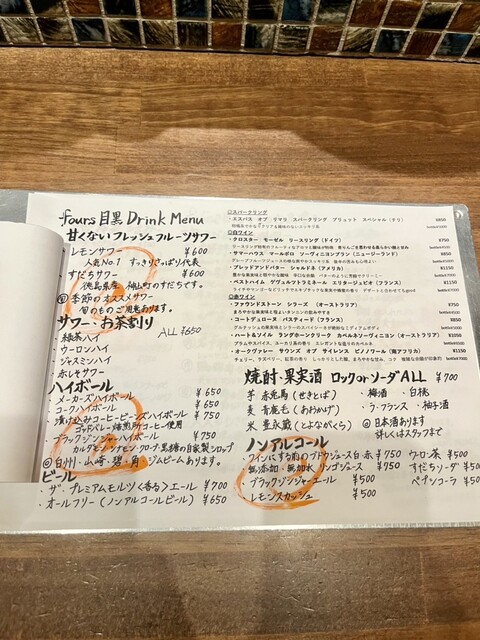 fours 目黒 Drink Menu
甘くないフレッシュフルーツサワー
・レモンサワー ¥600
人気No.1 すっきりさっぱり代表
・すだちサワー ¥600
徳島県産 神山町のすだちです。
季節のオススメサワー
旬のものご用意あります。
サワー・お茶割り ALL ¥650
・緑茶ハイ
・ウーロンハイ
・ジャスミンハイ
・赤しそサワー
ハイボール
・メーカーズハイボール ¥650
・コークハイボール ¥650
・漬け込みコーヒービーンズハイボール ¥750
ゴッドバレー焙煎所コーヒー使用
・ブラックジンジャーハイボール ¥750
カルダモン・シナモン・クローブ・黒糖の自家製シロップ
白州・山崎・碧・角・ジムビームあります。
ビール
・ザ・プレミアムモルツ<香る>エール ¥700
・オールフリー(ノンアルコールビール) ¥650
□スパークリング
・エスパス オブ リマリ スパークリング ブリュット スペシャル(チリ) ¥850
□白ワイン
・クロスター モーゼル リースリング(ドイツ) ¥750
・サマーハウス マールボロ ソーヴィニヨンブラン(ニュージーランド) ¥850
・ブレッドアンドバター シャルドネ(アメリカ) ¥1150
・ベストハイム ゲヴュルツトラミネール リザーブ(フランス) ¥1150
□赤ワイン
・ファウンドストーン シラーズ (オーストラリア) ¥750
まろやかな果実味と程よいタンニンの飲みやすさ
・コートデュローヌ パスティード(フランス) ¥850
・ハート&ソイル ラングホーンクリーク カベルネソーヴィニヨン(オーストラリア) ¥1050
・オークヴァレー サウンズ オブ サイレンス ピノノワール(南アフリカ) ¥1150
焼酎・果実酒 ロックorソーダ ALL ¥700
芋 赤兎馬(せきとば) ・梅酒 ・白桃
麦 青鹿毛(あおかげ) ・ラ・フランス ・柚子酒
米 豊永蔵(とよながくら) 日本酒あります
詳しくはスタッフまで
ノンアルコール
・ワインにする前のブドウジュース白・赤 ¥750
・無添加・無加水 リンゴジュース ¥750
・ブラックジンジャーエール ¥500
・レモンスカッシュ ¥500
ウーロン茶 ¥500
すだちソーダ ¥500
ペプシコーラ ¥500